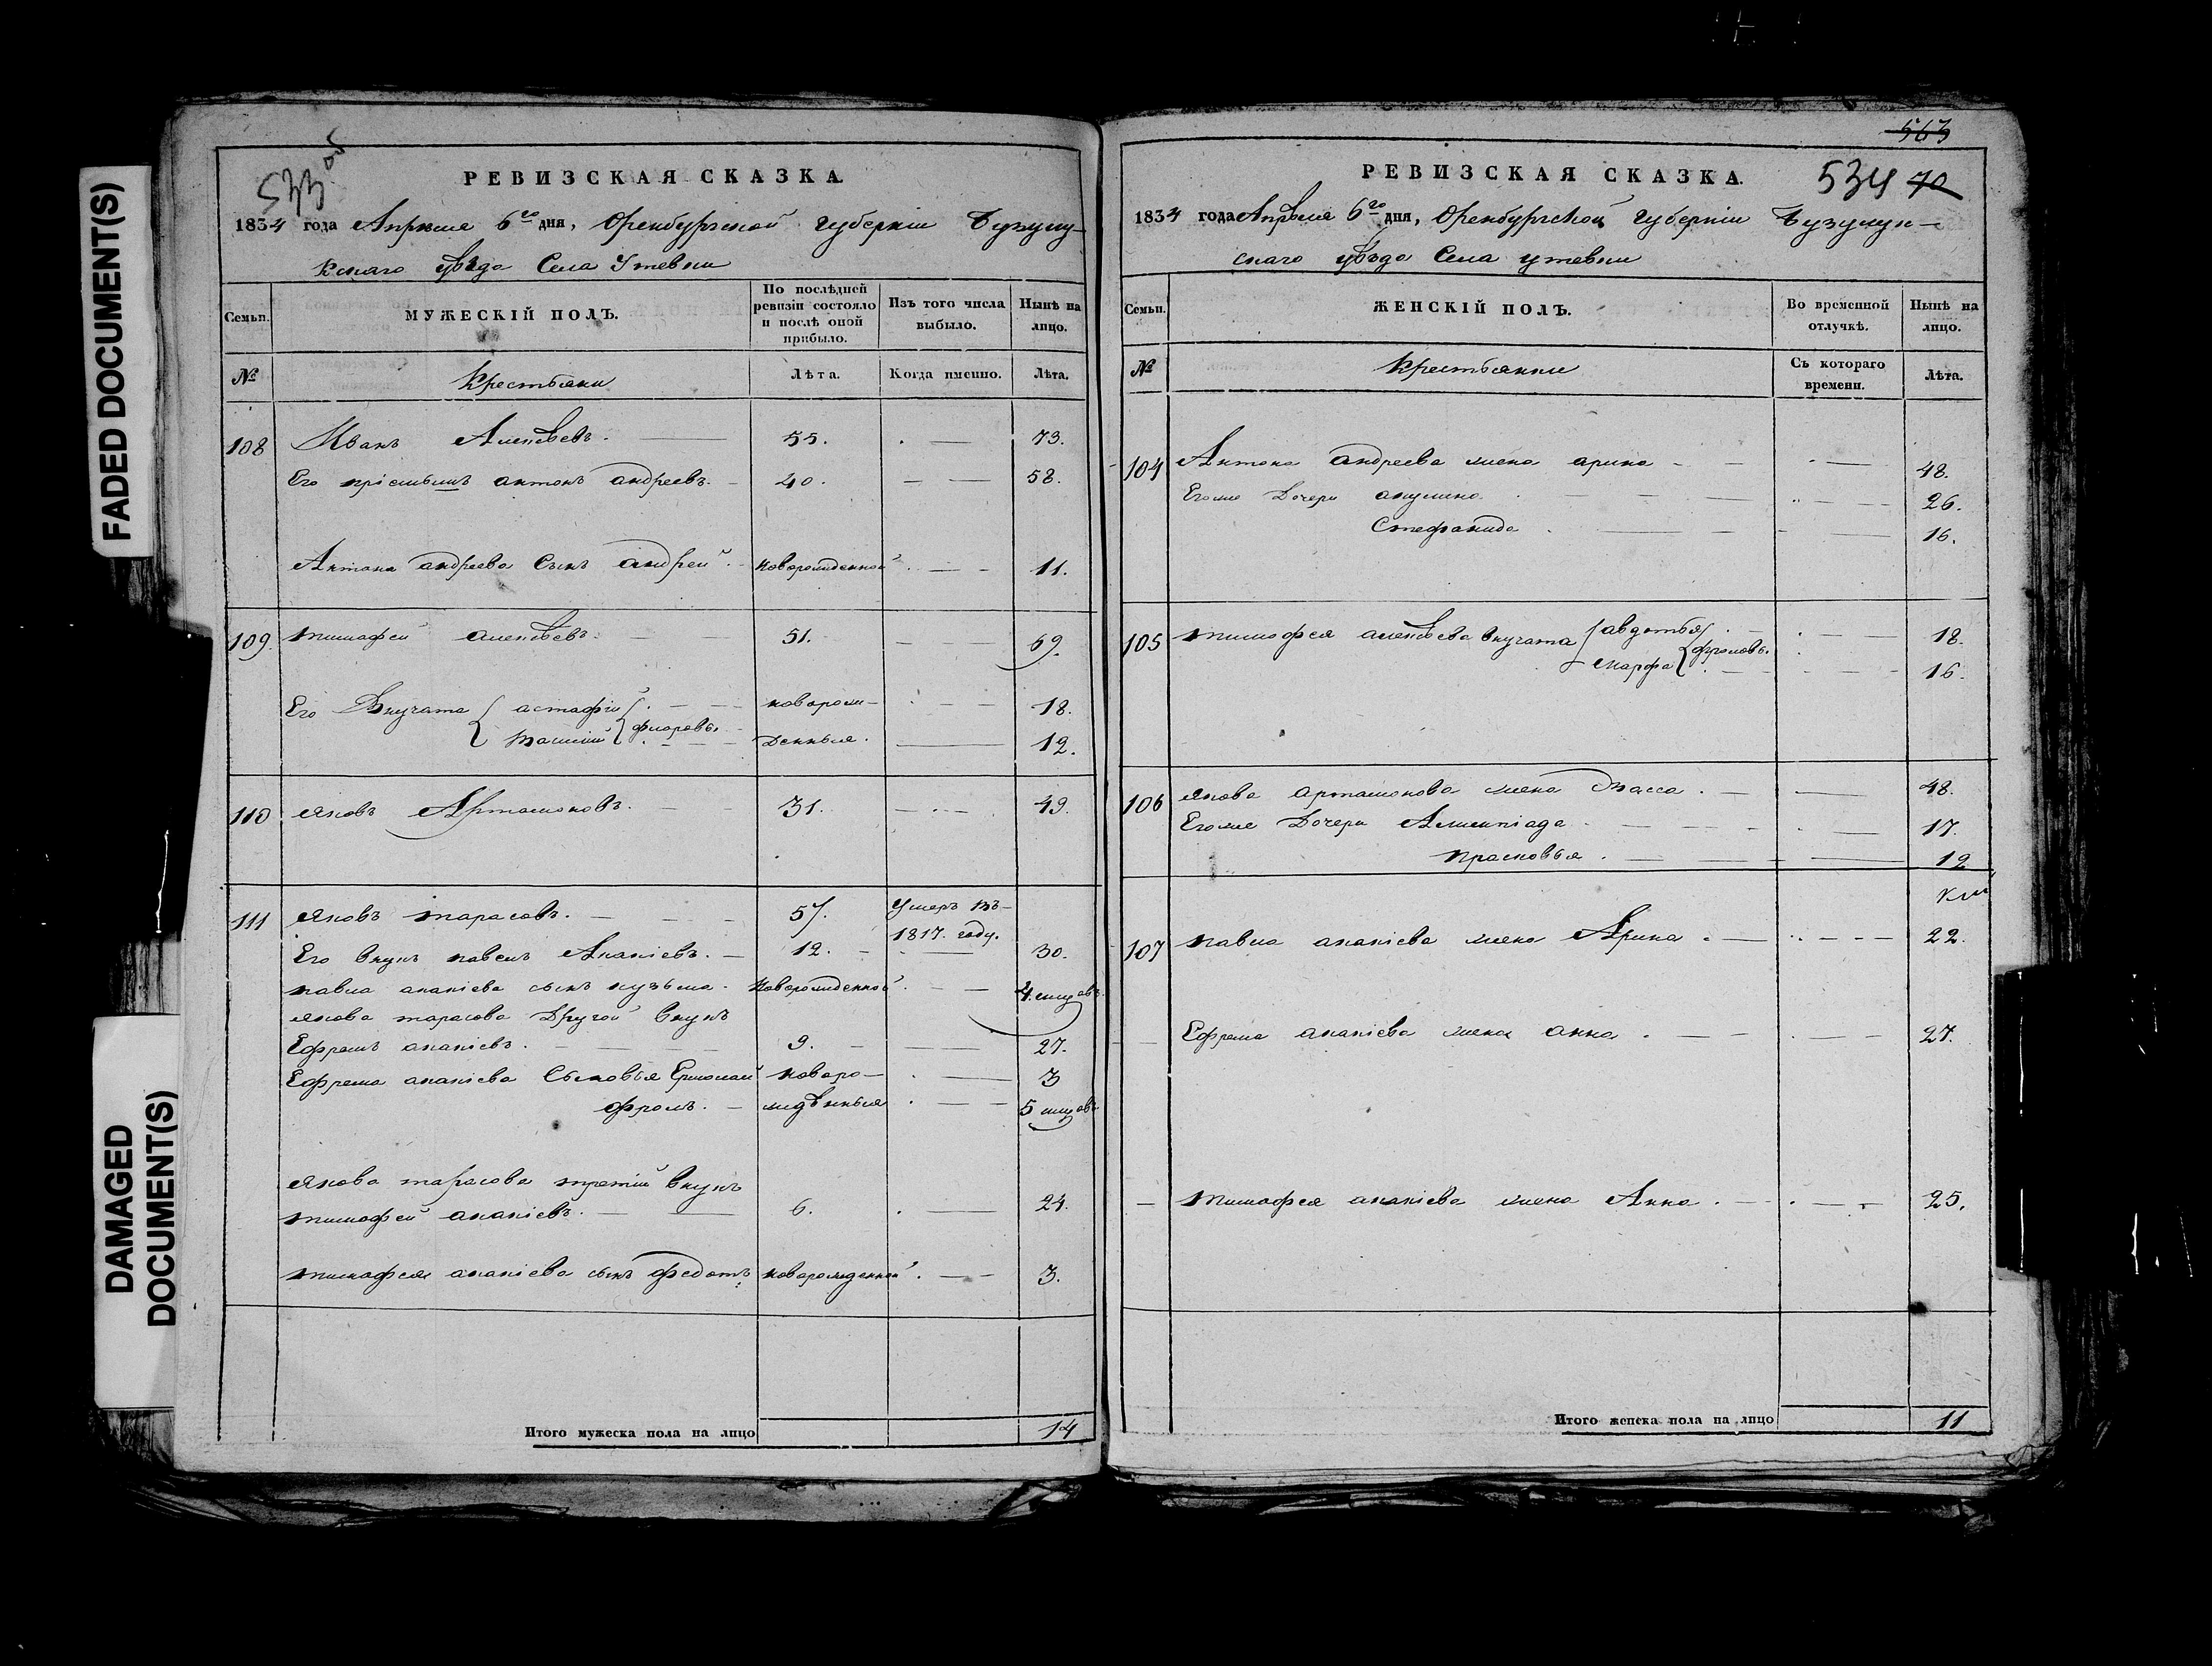 FADED DOCUMENT(S)
DAMAGED
DOCUMENT(S)
533 об
РЕВИЗСКАЯ СКАЗКА.
1834 года Апреля 6го дня, Оренбургской губернiи Бузулу-
кскаго уѣзда Села Утевки
Семьи.
МУЖЕСКІЙ ПОЛЪ.
По послѣдней ревизіи состояло и послѣ оной прибыло.
Изъ того числа выбыло.
Нынѣ на лицо.
№
Крестьяни
Лѣта.
Когда именно.
Лѣта.
108 Иванъ Алексѣевъ. 55. 73.
Его пріемышъ антонъ андреевъ. 40. 58.
Антона андреева Сынъ андрей. новорожденной 11.
109. тимофей алексѣевъ. 51. 69.
Его Внучата астафiй новорож- 18.
флоровы.
денныя. 12.
110 Яковъ Артамоновъ. 31. 49.
111 Яковъ тарасовъ. 57. Умеръ въ
1817. году.
Его внукъ павелъ Ананіевъ. 12. 30.
павла ананіева сынъ кузьма. Новорожденной 4. месецовъ.
якова тарасова Другой внукъ
Ефремъ ананіевъ. 9. 27.
Ефрема ананіева Сыновья Ермолай новоро- 3
фролъ. ждѣнныя 5 месецовъ
Якова тарасова третій внукъ
тимофей ананіевъ. 6. 24.
тимофея ананіева сынъ федотъ новорожденной. 3.
Итого мужеска пола на лицо 14
563
534 70
РЕВИЗСКАЯ СКАЗКА.
1834 года Апрѣля 6го дня, Оренбургской губерніи Бузулук-
скаго уѣзда Села утевки
Семьи.
ЖЕНСКІЙ ПОЛЪ.
Во временной отлучкѣ.
Нынѣ на лицо.
№
Крестьянки
Съ котораго времени.
Лѣта.
104 Антона андреева жена арина 48.
Егоже Дочери акулина 26.
Стефанида 16.
105 тимофея алексѣева внучата авдотья 18.
фроловы.
марфа 16.
106 Якова артамонова жена Васса. 48.
Егоже Дочери 17.
прасковья. 12
107 павла ананіева жена Арина. 22.
Ефрема ананіева жена анна. 27.
тимофея ананіева жена Анна. 25.
Итого женска пола на лицо 11